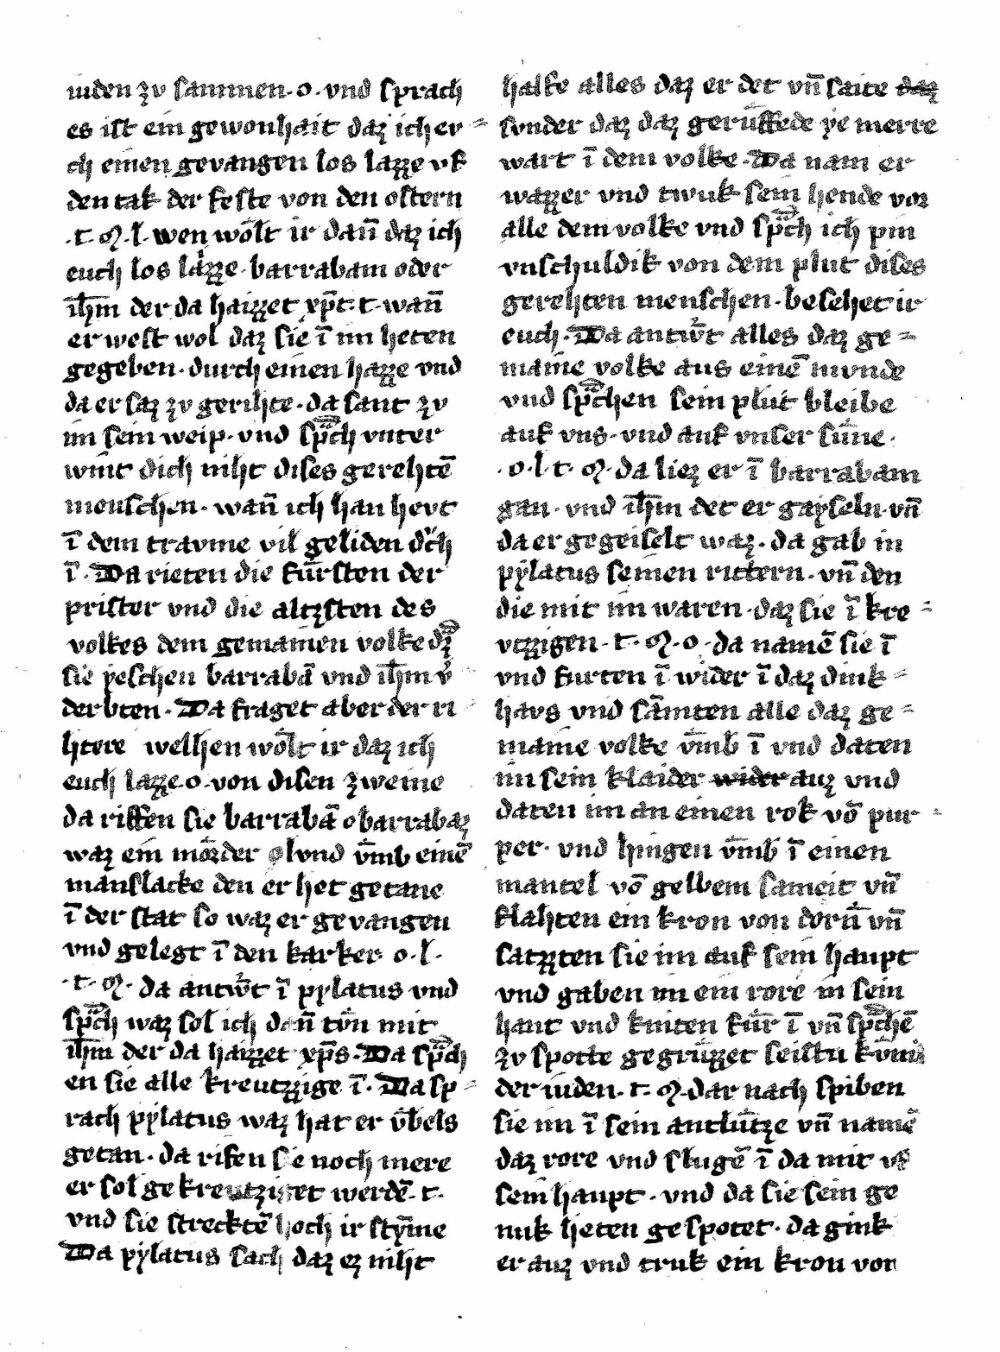 iuden zv sammen· o· vnd sprach
es ist ein gewonhait daz ich ev=
ch einen gevangen los lazze vf
den tak der feste von den ostern
·t· m· l· wen wolt ir dañ daz ich
euch los lazze· barrabam oder
ih̄m der da haizzet xp̄t· t· wañ
er west wol daz sie ī im heten
gegeben· durch einen hazze vnd
da er saz zv gerihte· da sant zv
im sein weip· vnd sp̄ch vnter
wint dich niht dises gerehtē
menschen· wañ ich han hevt
ī dem travme vil geliden dͮch
ī· Da rieten die fürsten der
prister vnd die altzsten des
volkes dem gemainen volke dz
sie ÿeschen barrabā vnd ih̄m v̾
derbten· Da fraget aber der ri=
htere welhen wolt ir daz ich
euch lazze· o· von disen zweine
da riffen sie barrabā o barrabaz
waz ein mörder o l vnd v̄mb einē
manslacke den er het getane
ī der stat so waz er gevangen
vnd gelegt ī den karker· o· l·
·t· m· da antw̾t ī pylatus vnd
sp̄ch waz sol ich dañ tūn mit
ih̄m der da haizzet xp̄s· Da sp̄ch
en sie alle kreutzzige ī· Da sp=
rach pÿlatus waz hat er v̈bels
getan· da rifen sie noch mere
er sol gekreutziget werdē· t·
vnd sie strecktē hoch ir styme
Da pÿlatus sach daz ez niht
halfe alles daz er det vñ saite daz
sunder daz daz gerüffede ye merre
wart ī dem volke· Da nam er
wazzer vnd twuk sein hende vor
alle dem volke vnd sp̄ch ich pin
vnschuldik von dem plut dises
gerehten menschen· besehet ir
euch· Da antw̾t alles daz ge=
maine volke aus einē munde
vnd sp̄chen sein plut bleibe
auf vns· vnd auf vnser süne·
·o· l· t· m· da liez er ī barrabam
gan· vnd ih̄m det er gayseln· vñ
da er gegeiselt waz· da gab in
pÿlatus seinen rittern· vñ den
die mit im waren· daz sie ī kre=
vtzzigen· t· m· o· da namē sie ī
vnd furten ī wider ī daz dink=
havs vnd sāmten alle daz ge=
maine volke v̄mb ī vnd daten
im sein klaider wider auz vnd
daten im an einen rok vō pur=
per· vnd hingen v̄mb ī einen
mantel vō gelbem sameit vñ
flahten ein kron von dorn̄ vñ
satzzten sie im auf sein haupt
vnd gaben im ein rore in sein
hant vnd kniten für ī vñ sp̄chē
zv spotte gegrüzzet seistu künig
der iuden· t· m· dar nach spiben
sie im ī sein antlütze vñ namē
daz rore vnd slugē ī da mit vf
sein haupt· vnd da sie sein ge
nuk heten gespotet· da gink
er auz vnd truk ein kron von